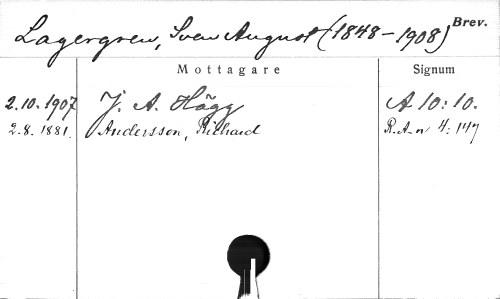 Lagergren, Sven August (1848-1908) Brev.
Mottagare Signum
2.10.1907 J. A. Hägg A 10:10.
2.8.1881. Andersson, Richard R.A-n 4:147